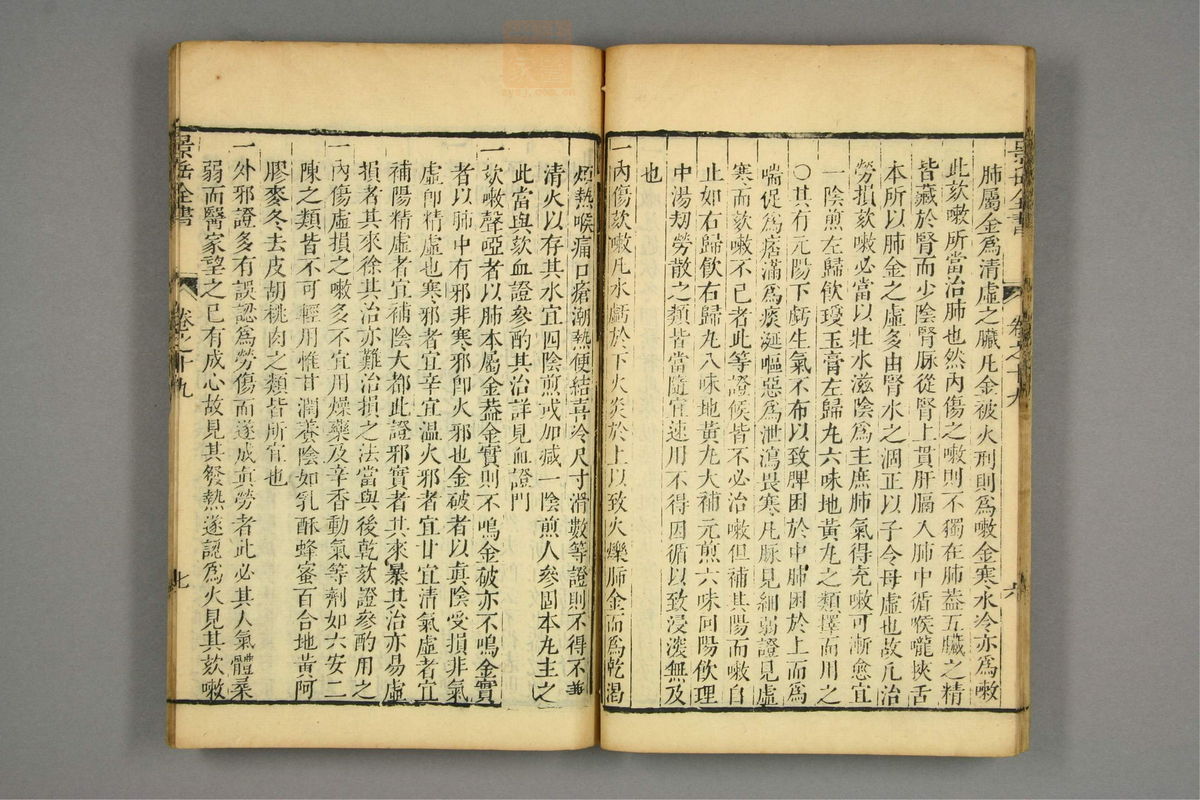 肺屬金爲清虛之臟凡金被火刑則爲嗽金寒水冷亦爲嗽
此欬嗽所當治肺也然內傷之嗽則不獨在肺葢五臟之精
皆藏於腎而少陰腎脉從腎上貫肝膈入肺中循喉嚨挾舌
本所以肺金之虛多由腎水之涸正以子令母虛也故凡治
勞損欬嗽必當以壯水滋陰爲主庶肺氣得充嗽可漸愈宜
一陰煎左歸飲瓊玉膏左歸丸六味地黃丸之類擇而用之
○其有元陽下虧生氣不布以致脾困於中肺困於上而爲
喘促爲痞滿爲痰涎嘔惡爲泄瀉畏寒凡脉見細弱證見虛
寒而欬嗽不已者此等證候皆不必治嗽但補其陽而嗽自
止如右歸飲右歸丸八味地黃丸大補元煎六味囘陽飲理
中湯刼勞散之類皆當隨宜速用不得因循以致浸淡無及
也
一內傷欬嗽凡水虧於下火炎於上以致火爍肺金而爲乾渴
煩熱喉痛口瘡潮熱便結喜冷尺寸滑數等證則不得不兼
清火以存其水宜四陰煎或加減一陰煎人參固本丸主之
此當與欬血證參酌其治詳見血證門
一欬嗽聲啞者以肺本屬金葢金實則不鳴金破亦不鳴金實
者以肺中有邪非寒邪卽火邪也金破者以眞陰受損非氣
虛卽精虛也寒邪者宜辛宜溫火邪者宜甘宜清氣虛者宜
補陽精虛者宜補陰大都此證邪實者其來暴其治亦易虛
損者其來徐其治亦難治損之法當與後乾欬證參酌用之
一內傷虛損之嗽多不宜用燥藥及辛香動氣等劑如六安二
陳之類皆不可輕用惟甘潤養陰如乳酥蜂蜜百合地黃阿
膠麥冬去皮胡桃肉之類皆所宜也
一外邪證多有誤認爲勞傷而遂成眞勞者此必其人氣體柔
弱而醫家望之已有成心故見其發熱遂認爲火見其欬嗽
景岳全書
卷之十九
七
景岳全書
卷之十九
六